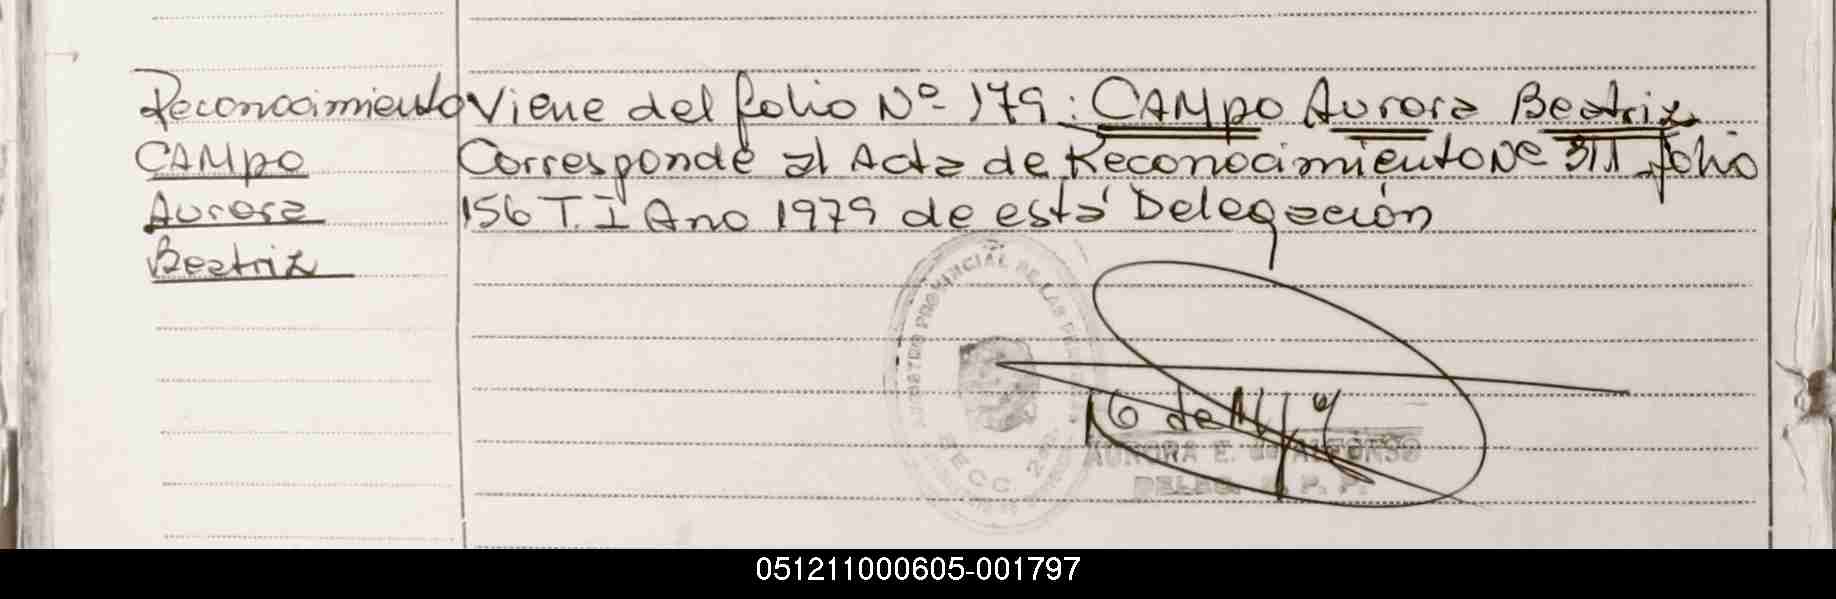 Reconocimiento Viene del folio Nº 179: CAMPO Aurora Beatriz
CAMPO Corresponde al Acta de Reconocimiento Nº 311 folio
Aurora 156 T. I Ano 1979 de está Delegación
Beatriz
REGISTRO PROVINCIAL DE LAS PERSONAS
SECC.
AURORA E. de ALFONSO
DELEG. R. P. P.
051211000605-001797